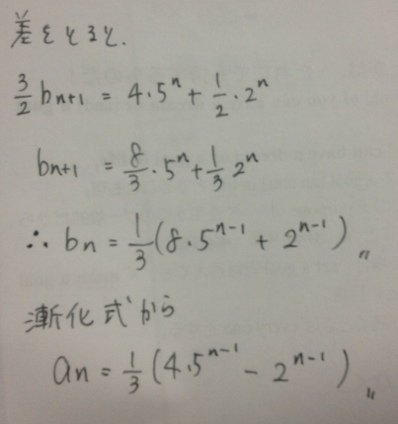 差をとると.
3/2 bn+1 = 4・5^n + 1/2・2^n
bn+1 = 8/3・5^n + 1/3 2^n
∴ bn = 1/3(8・5^n-1 + 2^n-1)〃
漸化式から
an = 1/3(4.5^n-1 - 2^n-1)〃